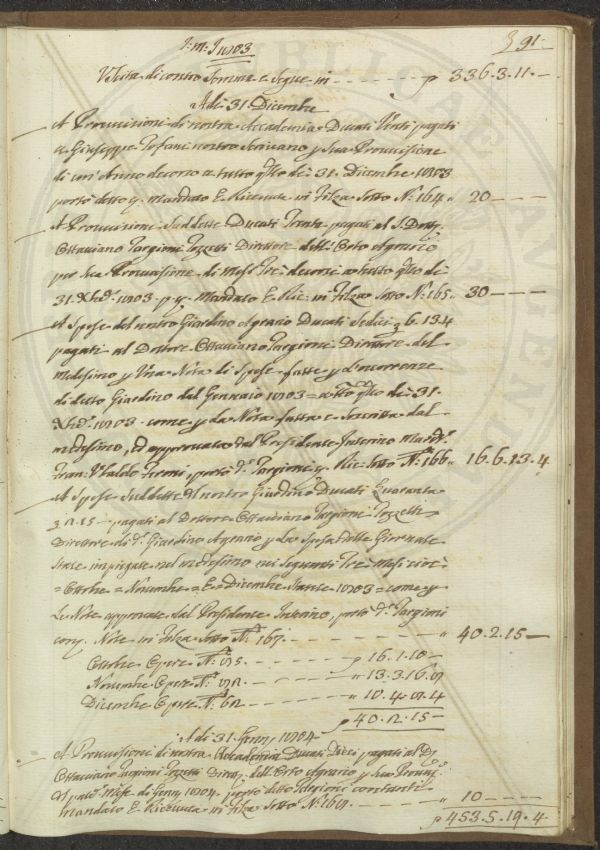 I: M: I 1803
91
Uscita di contro Somma e Segue in - - - - - - p 336.3.11.—
A di 31. Dicembre
A Provvisioni di nostra Accademia Ducati Venti pagati
a Giuseppe Tofani nostro Scrivano p Sua Provvisione
di un' Anno decorso a tutto qsto dì 31. Dicembre 1803
portò detto p. Mandato E. Ricevute in Filza Sotto N.° 164 „ 20 — — —
A Provvisioni Suddette Ducati Trenta pagati al S. Dott.
Ottaviano Targioni Tozzetti Direttore dell' Orto Agrario
per Sua Provvisione di Mesi Tre decorsi a tutto qsto dì
31. Xbre 1803 p. p. Mandato E. Ric. in Filza Sotto N.° 165 „ 30 — — —
A Spese del nostro Giardino Agrario Ducati Sedici 3 6.13.4
pagati al Dottore Ottaviano Targioni Direttore del
Medesimo p Una Nota di Spese fatte p Occorrenze
di detto Giardino dal Gennaio 1803 = a tto qsto dì 31.
Xbre 1803 come p la Nota fatta e Scritta dal
medesimo, ed approvata dal Presidente Interino
portò d.° Targioni p. Ric. Sotto N.° 166 „ 16.6.13.4
A Spese Suddette d nostro Giardino Ducati Quaranta
3 2.15 — pagati al Dottore Ottaviano Targioni Tozzetti
Direttore di d.° Giardino Agrario p La Spesa delle Giornate
State impiegate nel medesimo nei Seguenti Tre Mesi cioè
= Ottobre = Novembre = E = Dicembre Stante 1803 = come p
Le Note approvate dal Presidente Interino, portò d.° Targioni
cony. Note in Filza Sotto N.° 167. - - - - - - - - - - „ 40.2.15 —
Ottobre Opere N.° 75. - - - - - - p 16.1.10 —
Novembre Opere N.° 72. - - - - „ 13.3.16.8
Dicembre Opere N.° 62 - - - - - „ 10.4.8.4
p 40.2.15 —
A di 31. Genn. 1804
A Provvisioni di nostra Accademia Ducati Dieci pagati al D.
Ottaviano Targioni Tozzetti Dirett. dell' Orto Agrario p Sua Provv.
d pass. Mese di Genn. 1804. portò detto Targioni contanti
Mandato E. Ricevuta in Filza Sotto N.° 168. - - - - - - - „ 10 — — —
p 453.5.19.4.